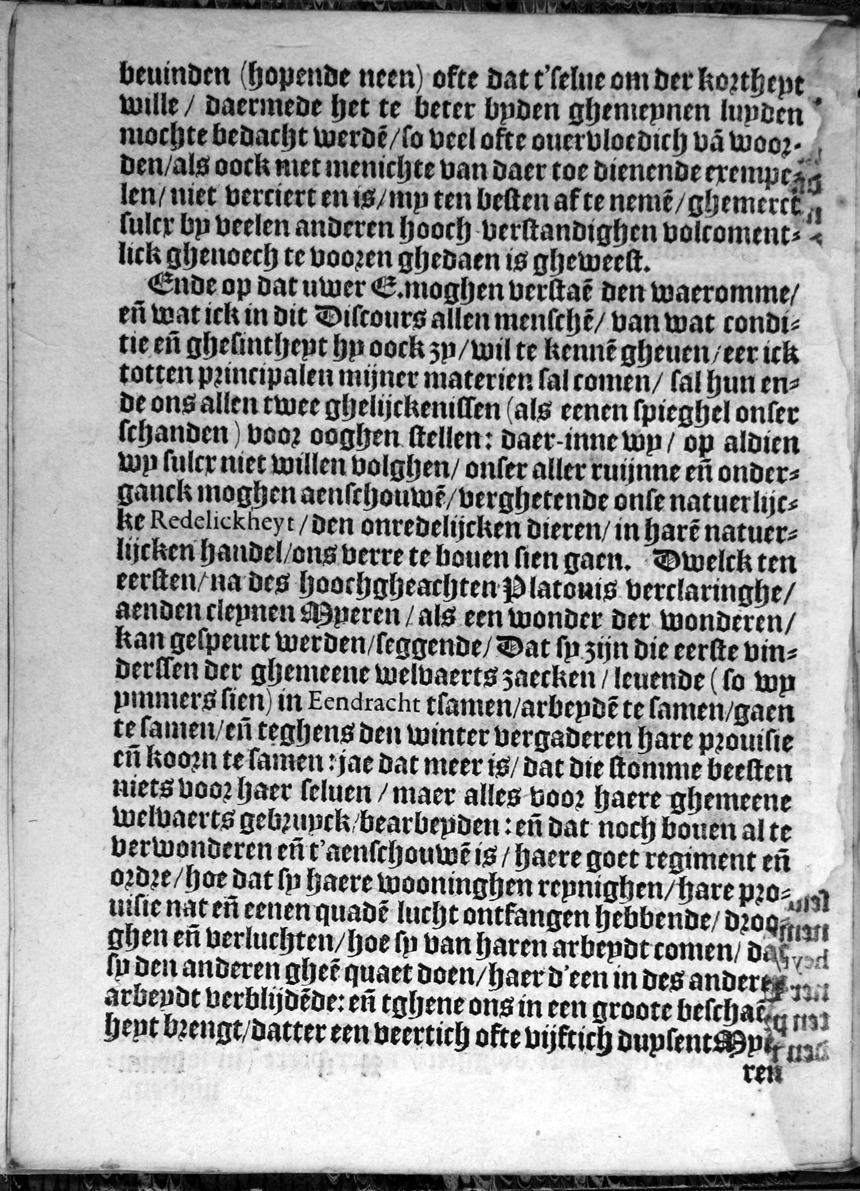 beuinden (hopende neen) ofte dat t'selue om der kortheyt
wille / daermede het te beter byden ghemeynen luyden
mochte bedacht werdē/so veel ofte ouervloedich vā woor-
den/als oock met menichte van daer toe dienende exempe-
len/niet verciert en is/my ten besten af te nemē/ghemerct
sulcx by veelen anderen hooch verstandighen volcoment-
lick ghenoech te vooren ghedaen is gheweest.
Ende op dat uwer E.moghen verstaē den waeromme/
eñ wat ick in dit Discours allen menschē/ van wat condi-
tie eñ ghesintheyt hy oock zy/wil te kennē gheuen/eer ick
totten principalen mijner materien sal comen/ sal hun en-
de ons allen twee ghelijckenissen (als eenen spieghel onser
schanden) voor ooghen stellen: daer-inne wy/ op aldien
wy sulcx niet willen volghen/ onser aller ruijnne eñ onder-
ganck moghen aenschouwē/verghetende onse natuerlijc-
ke Redelickheyt/den onredelijcken dieren/in harē natuer-
lijcken handel/ons verre te bouen sien gaen. Dwelck ten
eersten/na des hoochgheachten Platonis verclaringhe/
aenden cleynen Myeren/als een wonder der wonderen/
kan gespeurt werden/seggende/Dat sy zijn die eerste vin-
derssen der ghemeene welvaerts zaecken/leuende (so wy
ymmers sien) in Eendracht tsamen/arbeydē te samen/gaen
te samen/eñ teghens den winter vergaderen hare prouisie
eñ koorn te samen:jae dat meer is/dat die stomme beesten
niets voor haer seluen/maer alles voor haere ghemeene
welvaerts gebruyck/bearbeyden:eñ dat noch bouen al te
verwonderen eñ t'aenschouwē is/haere goet regiment eñ
ordre/hoe dat sy haere wooninghen reynighen/hare pro-
uisie nat eñ eenen quadē lucht ontfangen hebbende/droo-
ghen eñ verluchten/hoe sy van haren arbeydt comen/
sy den anderen gheē quaet doen/haer d'een in des anderen
arbeydt verblijdēde: eñ tghene ons in een groote beschaē
heyt brengt/datter een veertich ofte vijftich duysent Mye
ren